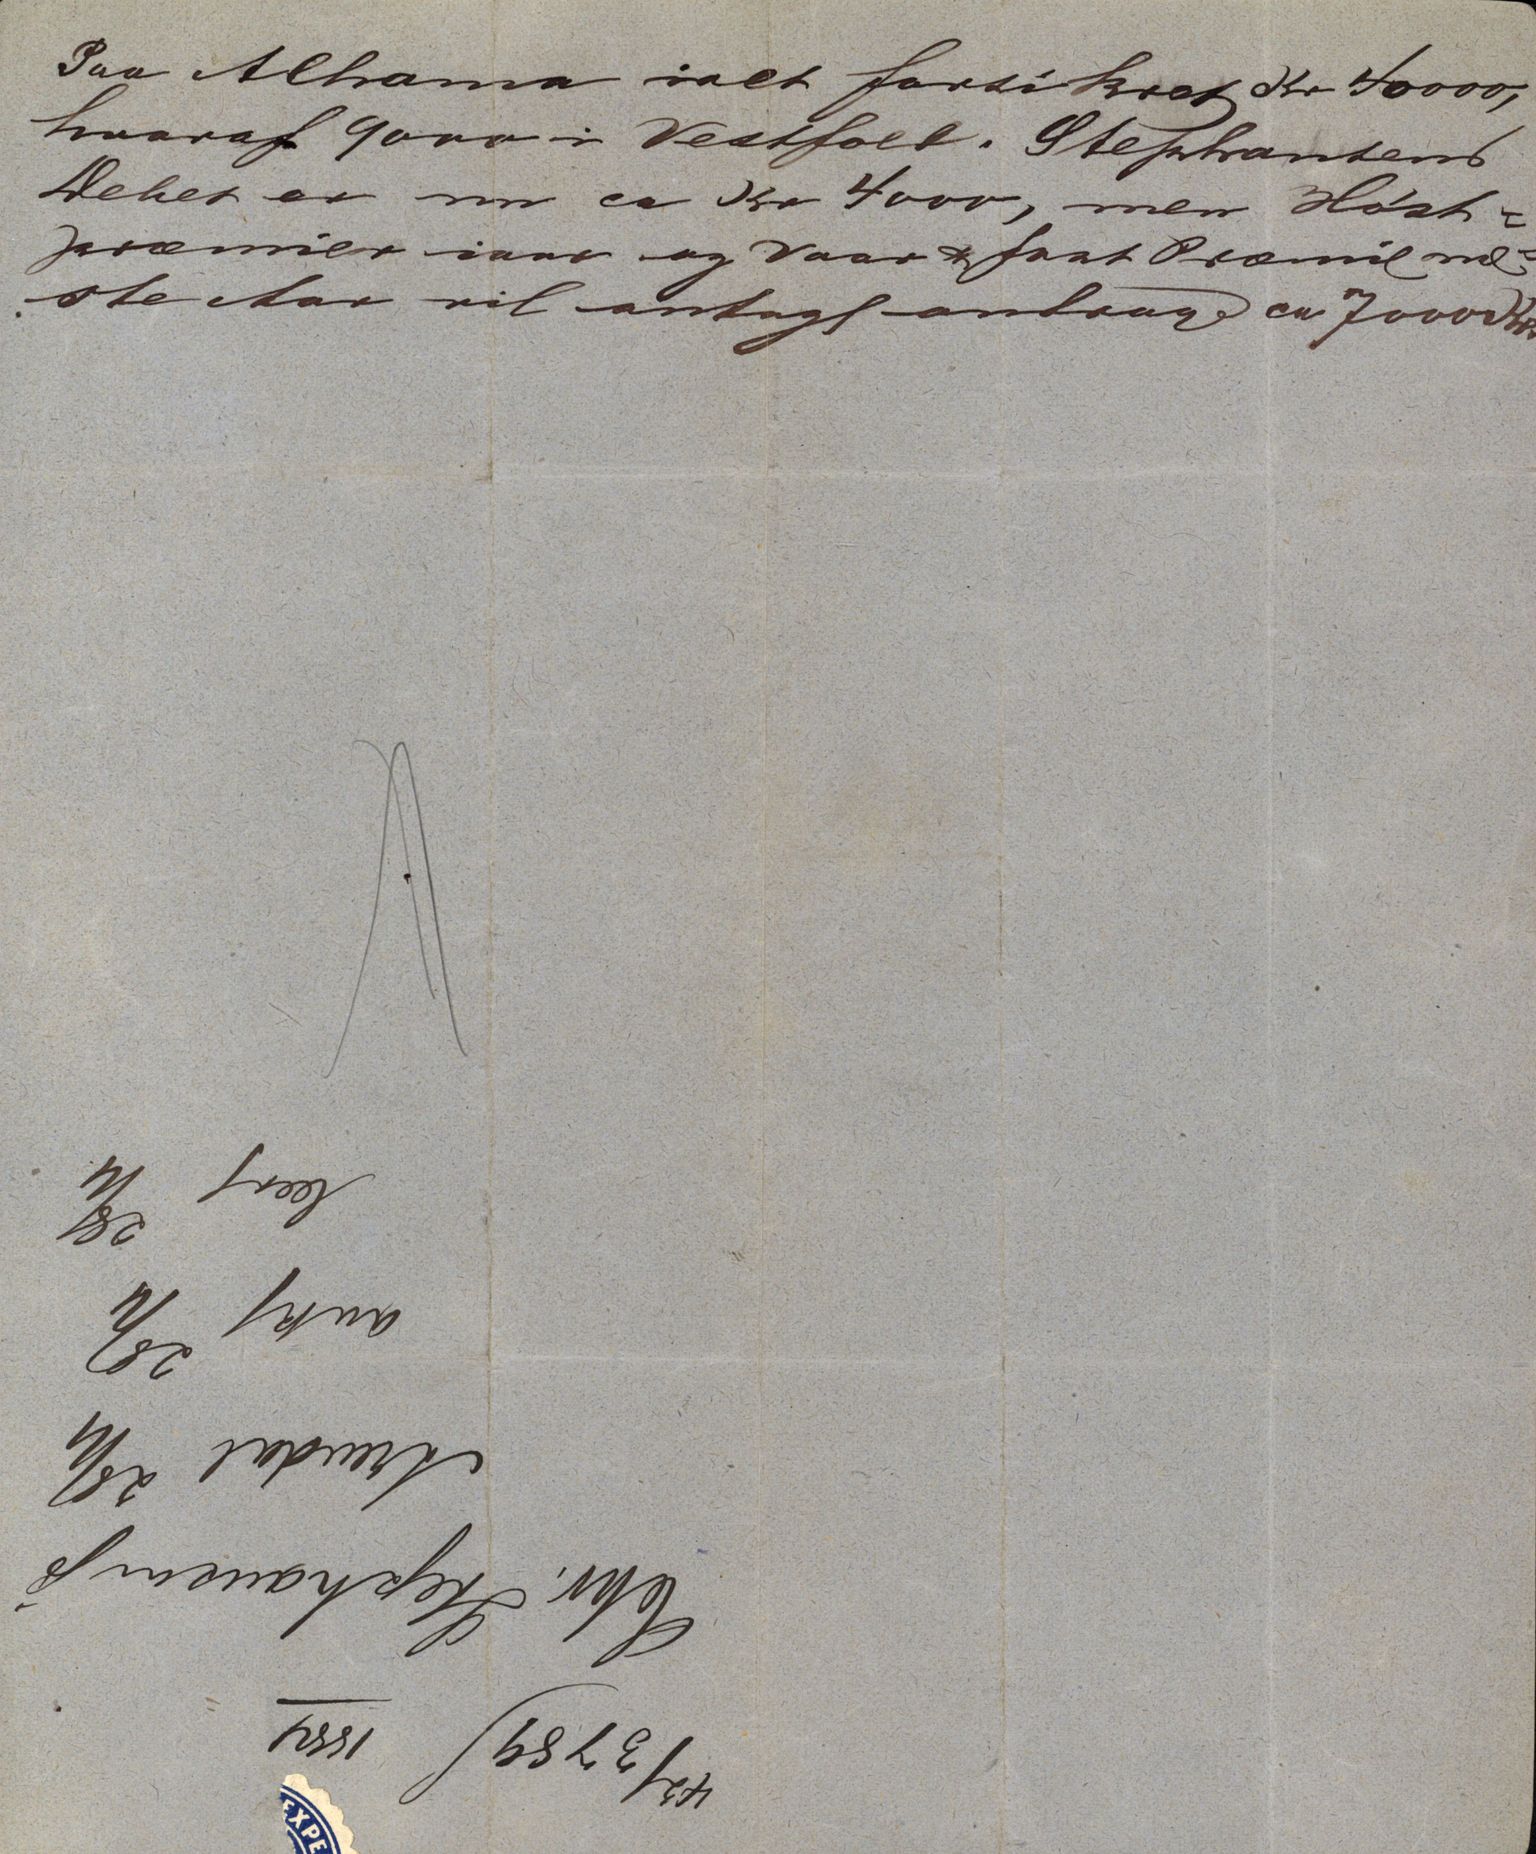 Paa Alhama ialt forsikret Kr 40000,
hvoraf 9000 i Vestfold. Stephansens
Debet er nu ca Kr 4000, men Höst-
præmier iaar og Vaar & fast Præmie næ-
ste Aar vil antagl andrage ca 7000 Kr
42/3789) 1884
Chr. Stephansen
Arendal 28/4
antf 28/4
besv 28/4
EXPE